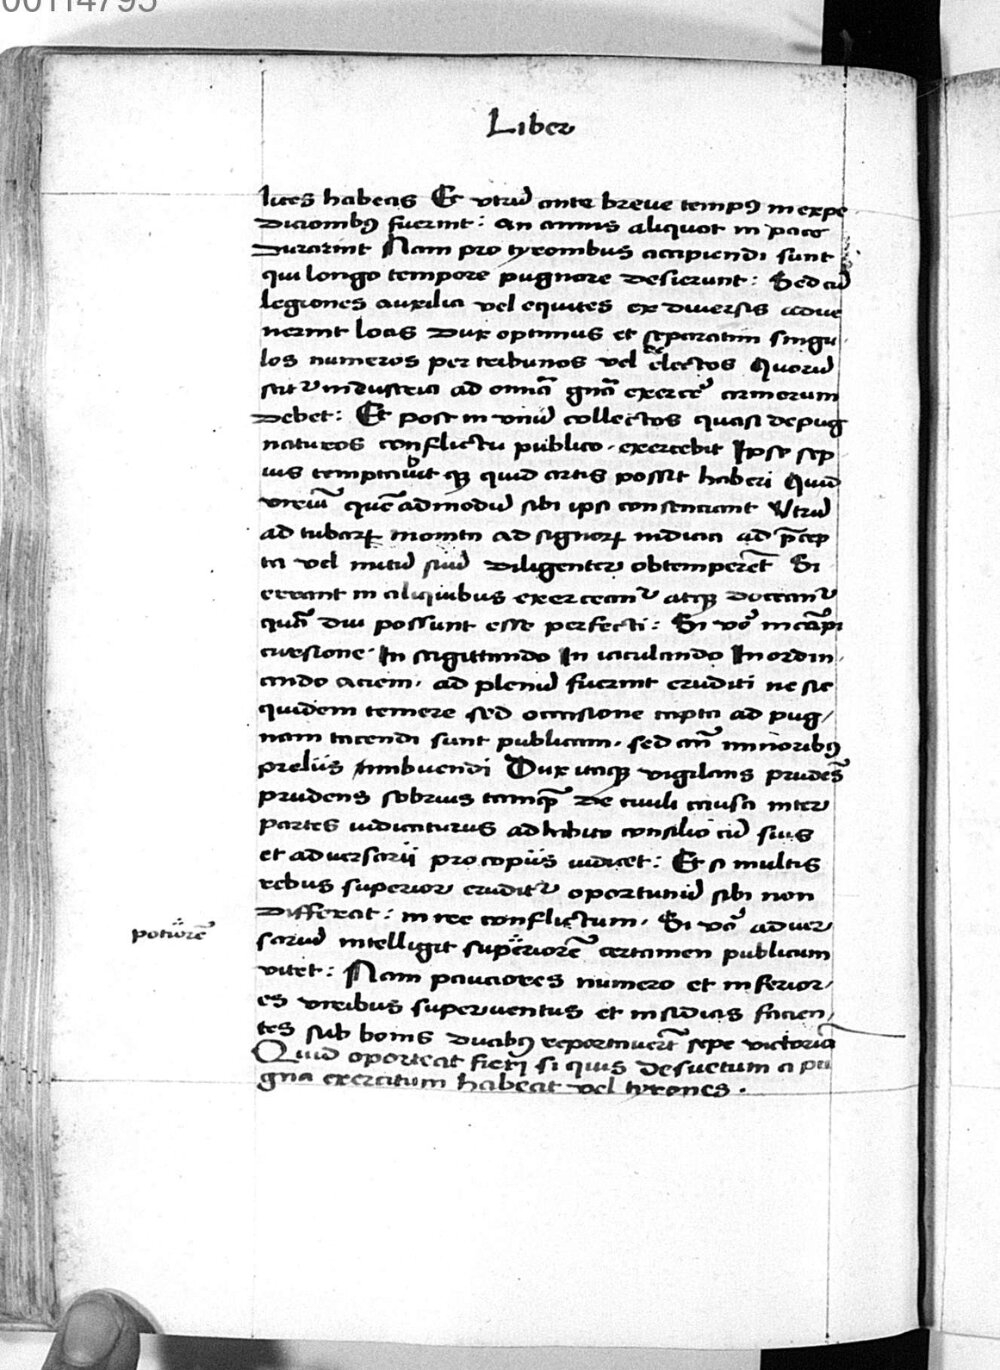 00114795
Liber
lites habeas Et vtrũ ante breue tempꝰ in expe
dicionibꝰ fuerint : an annis aliquot in pace
durarint Nam pro tyronibus accipiendi sunt
qui longo tempore pugnare desierunt : Sed cũ
legiones auxilia vel equites ex diuersis adue
nerint locis dux optimus et separatim singu
los numeros per tribunos vel electos quorũ
scit᷑ industria ad omniã gñã exercẽ armorum
debet : Et post in vnũ collectos quasi depug
naturos conflictu publico exercebit Ipse sep
ius temptabit qꝫ quid artis possit haberi Quid
virium̃ quẽadmodũ sibi ipsi consenciant Vtrũ
ad tubarꝝ monita ad signorꝝ indicia ad p̃cep
ta vel nutũ suũ diligenter obtemperẽt Si
errant in aliquibus exerceant᷑ atqꝫ doceant᷑
quã diu possunt esse perfecti : Si vo᷑ in cãpi
cursione · In sagittando In iaculando In ordin
ando aciem, ad plenũ fuerint eruditi ne sic
quidem temere sed occasione capta ad pug/
nam tacendi sunt publicam, sed añ minoribꝰ
preliis imbuendi Dux itaqꝫ vigilans prudẽs
prudens sobrius tamqꝫ̃ de ciuili causa inter
partes iudicaturus adhibito consilio cũ suis
et aduersarii pro copiis iudicet : Et si multis
rebus superior erudit᷑ oportunũ sibi non
differat : in ree conflictum, Si vo᷑ aduer
sariũ intelligit superiorẽ certamen publicum
potiorẽ
vitet : Nam pauciores numero et inferior/
es viribus superuentus et insidias facien/
tes sub bonis ducibꝰ reportauerũt sepe victoriã
Quid oporteat fieri si quis desuetum a pu
gna exercitum habeat vel tyrones ·